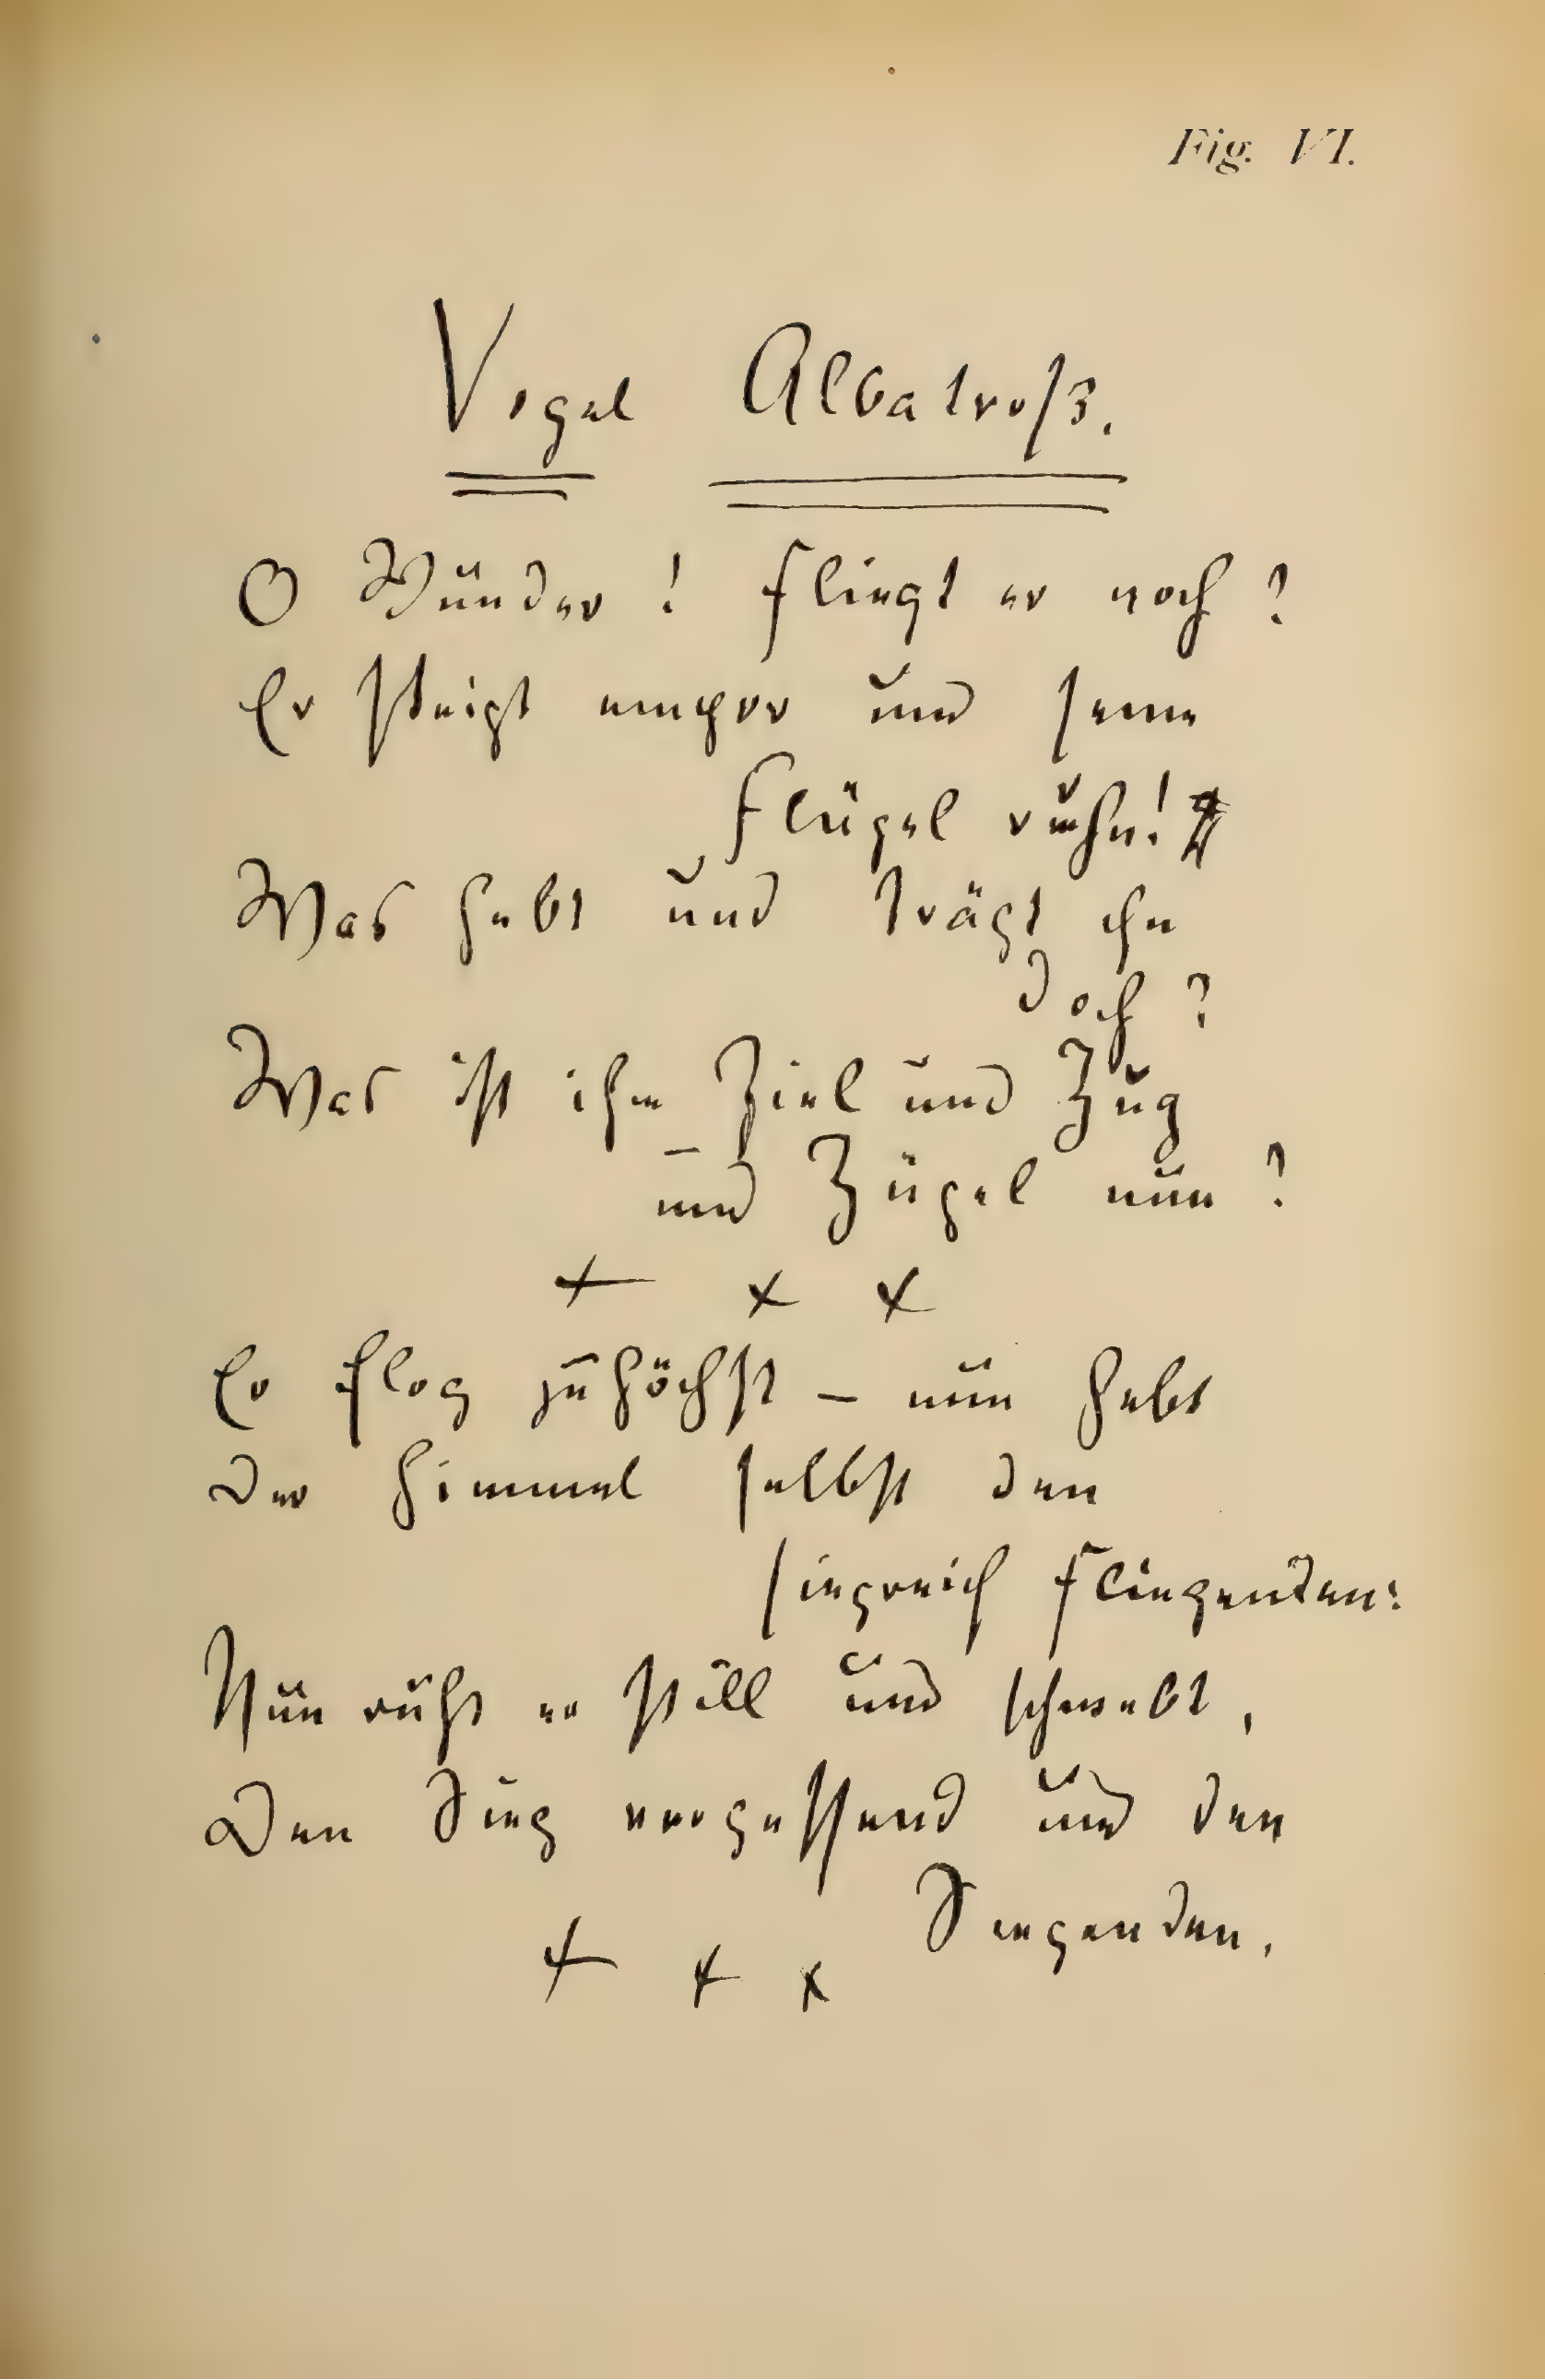 Fig. VI.
Vogel Albatroß.
O Wunder! Fliegt er noch?
Er steigt empor und seine
Flügel ruhn!
Was hebt und trägt ihn
doch?
Was ist ihm Ziel und Zug
und Zügel nun?
+ x x
Er flog zuhöchst – nun hebt
Der Himmel selbst den
siegreich Fliegenden:
Nun ruht er still und schwebt,
Den Sieg vergessend und den
Siegenden.
+ + x